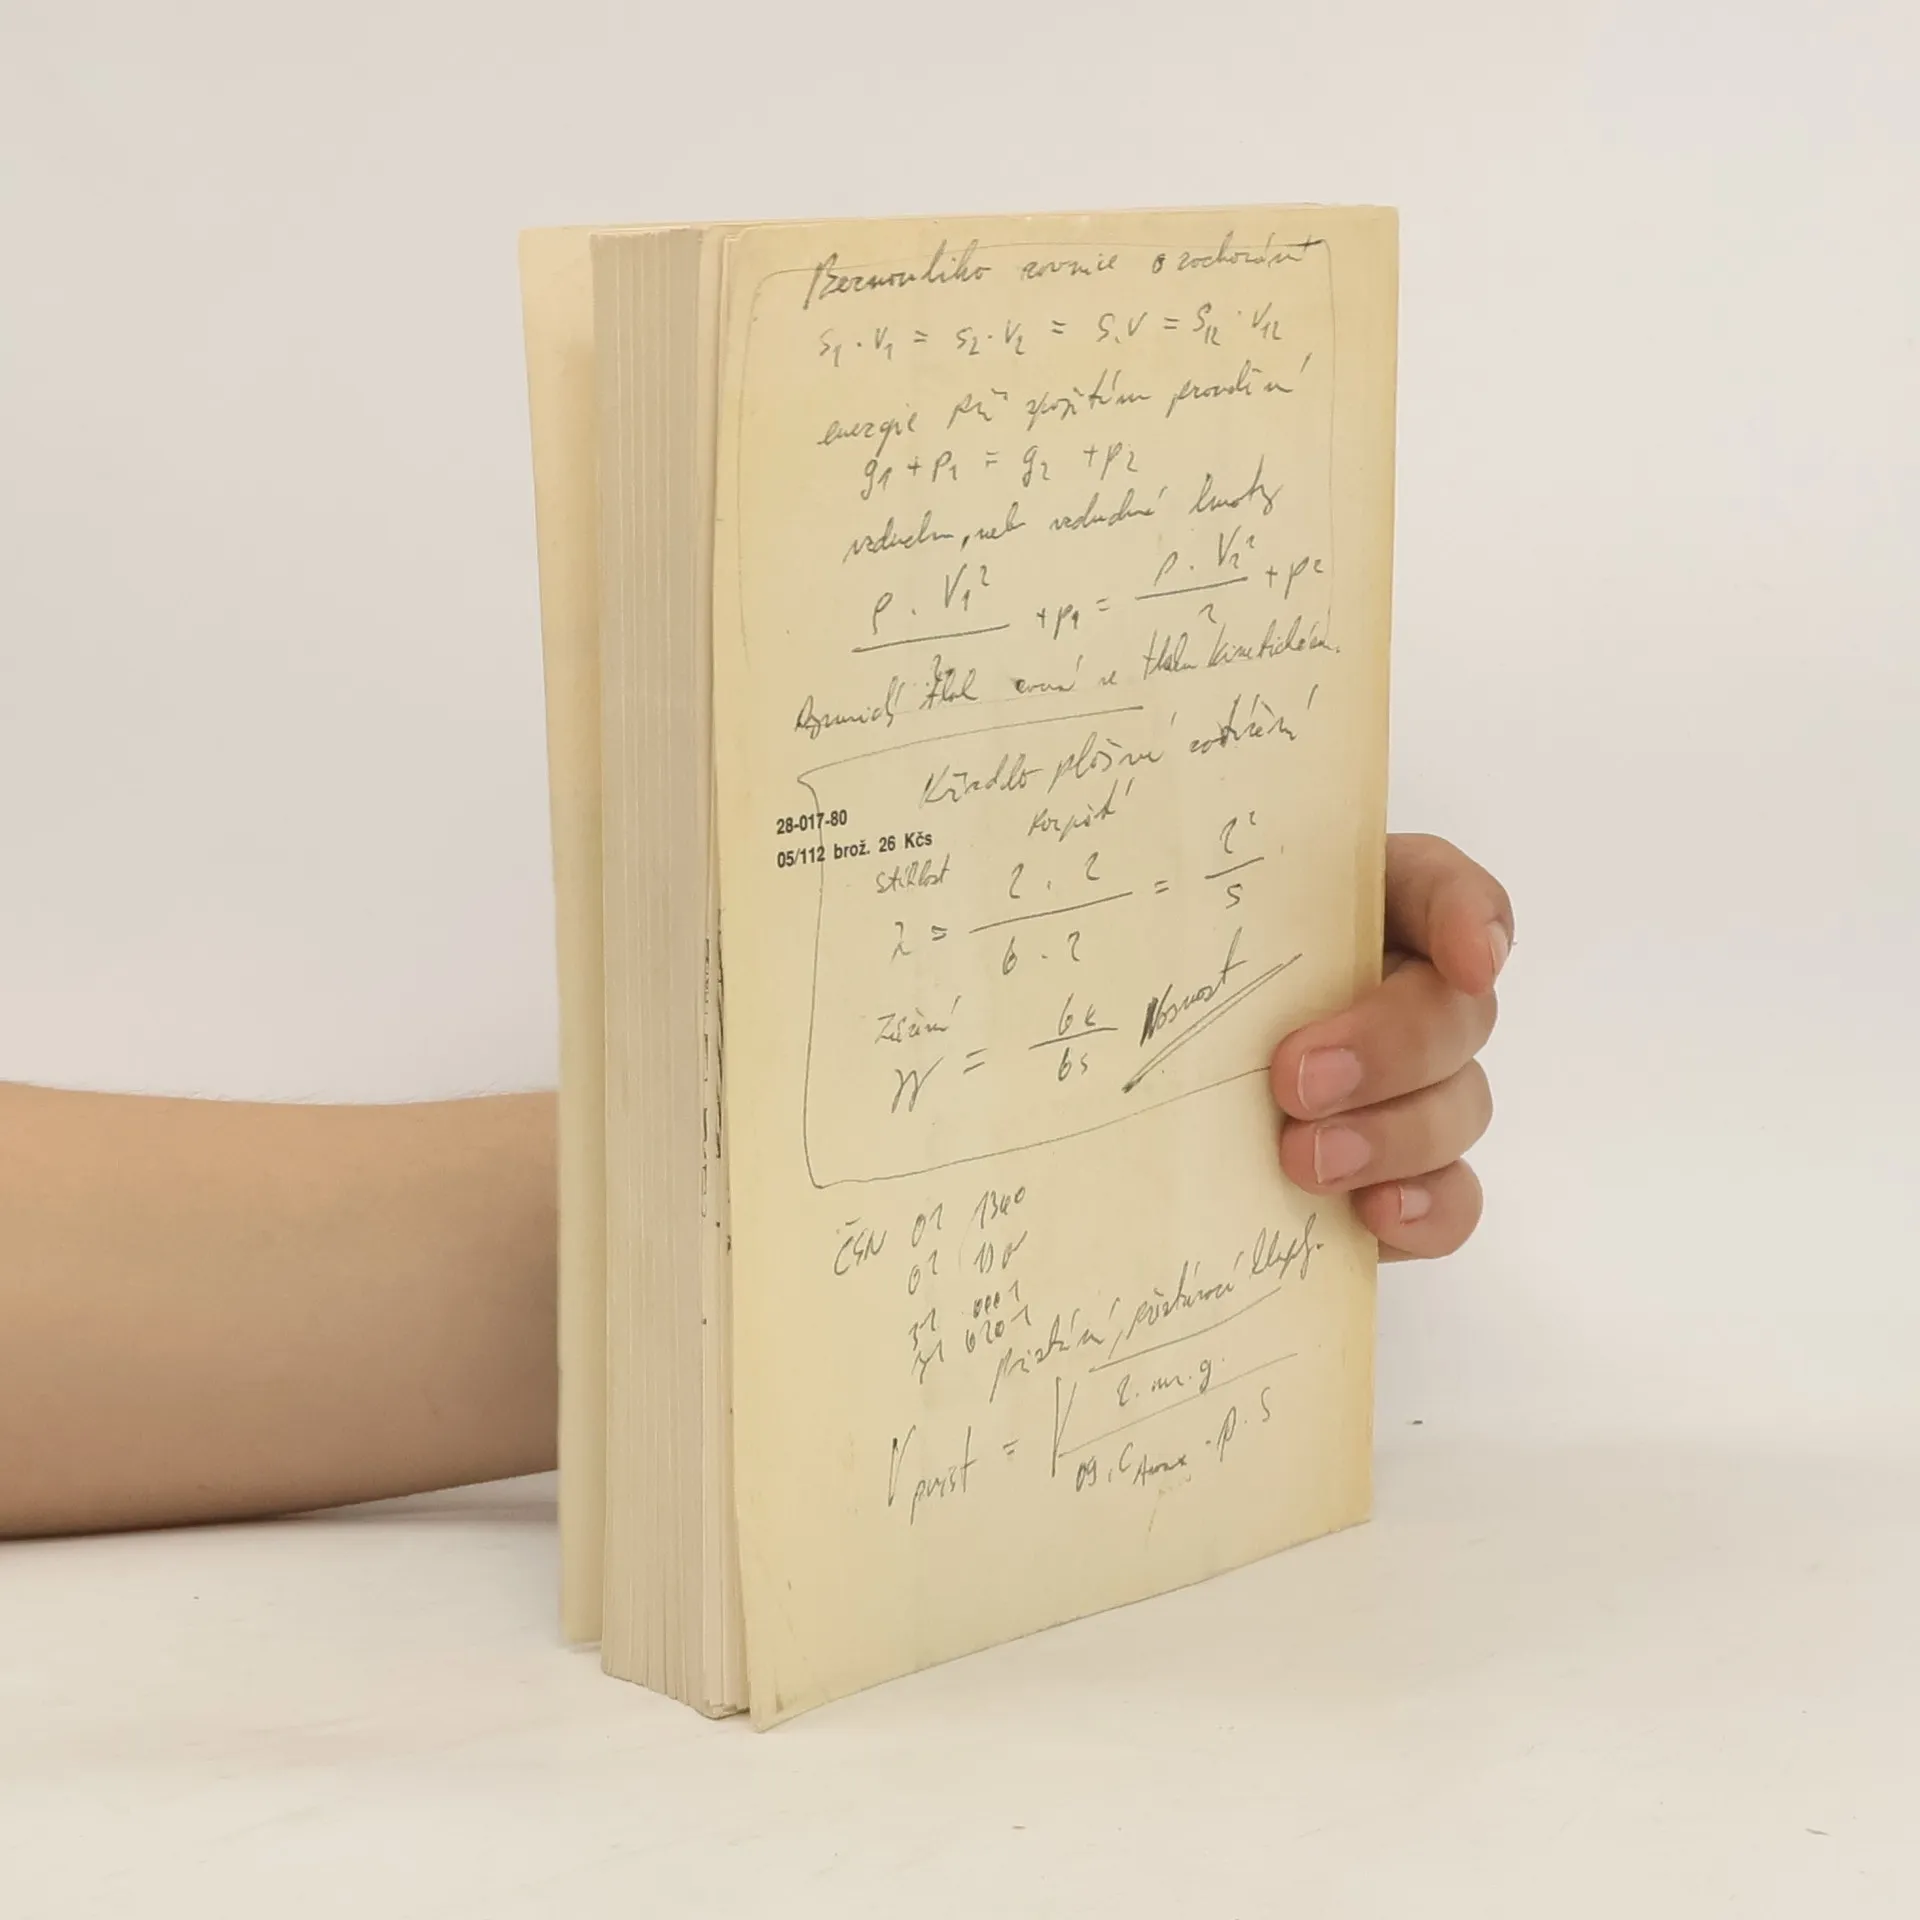 Bernouliho rovnice o zachování
S₁ · V₁ = S₂ · V₂ = S . V = S₁₂ · V₁₂
energie při spojitém proudění
g₁ + p₁ = g₂ + p₂
vzduchu, neb vzdušné hmoty
ρ · V₁² / 2 + p₁ = ρ · V₂² / 2 + p₂
Dynamický tlak rovná se tlaku kinetickém.
Křídlo plošné zatížení
28-017-80
rozpětí
05/112 brož. 26 Kčs
štíhlost
λ = l . l / b . l = l² / S
Zúžení
= bk / bs Nosnost
ČSN 01 1340
01
31 0001
31 6201
přistání, přistávací klapf.
V přist = √ 2 . m . g / 09 . C Amax · ρ . S